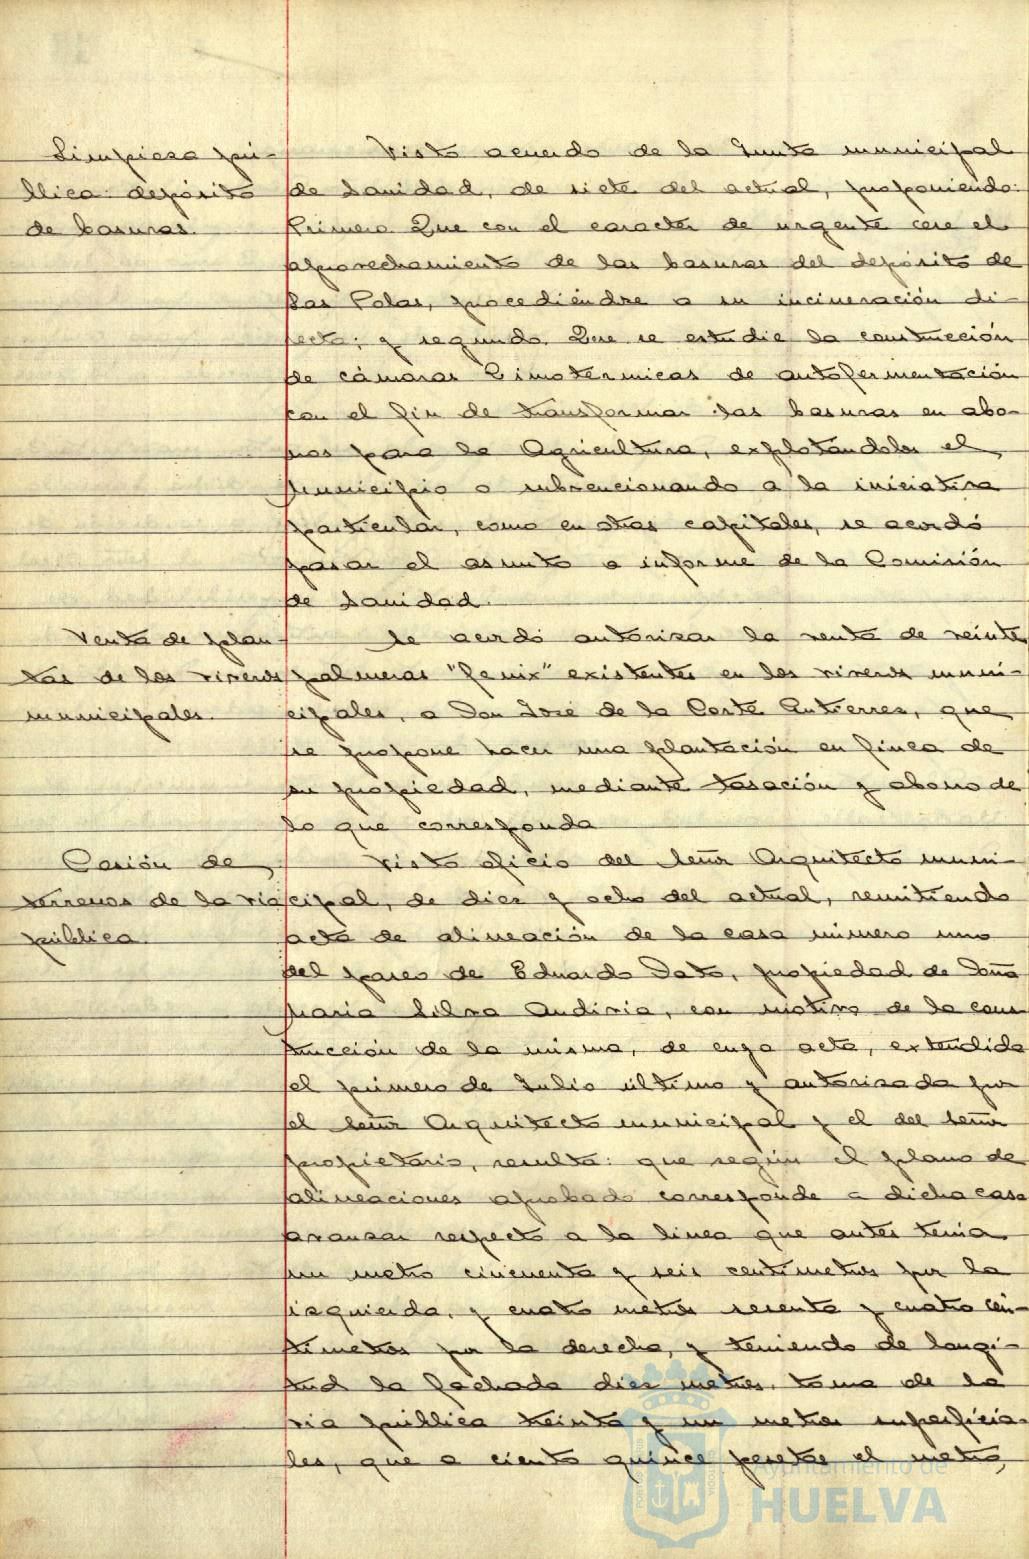 Limpieza pú-
blica: depósito
de basuras.
Visto acuerdo de la Junta municipal
de Sanidad, de siete del actual, proponiendo:
Primero Que con el caracter de urgente cese el
aprovechamiento de las basuras del depósito de
Las Polas, procediéndose a su incineración di-
recta; y segundo. Que se estudie la construcción
de cámaras Zimotérmicas de autofermentación
con el fin de transformar las basuras en abo-
nos para la Agricultura, explotándolas el
Municipio o subvencionando a la iniciativa
particular, como en otras capitales, se acordó
pasar el asunto a informe de la Comisión
de Sanidad.
Venta de plan-
tas de los viveros
municipales.
Se acordó autorizar la venta de veinte
palmeras "fenix" existentes en los viveros muni-
cipales, a Don José de la Corte Gutierrez, que
se propone hacer una plantación en finca de
su propiedad, mediante tasación y abono de
lo que corresponda
Cesión de
terrenos de la via
pública.
Visto oficio del Señor Arquitecto muni-
cipal, de diez y ocho del actual, remitiendo
acta de alineación de la casa número uno
del paseo de Eduardo Dato, propiedad de Doña
Maria Silva Andivia, con motivo de la cons
trucción de la misma, de cuya acta, extendida
el primero de Julio último y autorizada por
el Señor Arquitecto municipal y el del Señor
propietario, resulta: que según el plano de
alineaciones aprobado corresponde a dicha casa
avanzar respecto a la linea que antes tenía
un metro cincuenta y seis centímetros por la
izquierda, y cuatro metros sesenta y cuatro cén-
timetros por la derecha, y teniendo de longi-
tud la fachada diez metros, toma de la
via pública treinta y un metros superficia-
les, que a ciento quince pesetas el metro,
Ayuntamiento de
HUELVA